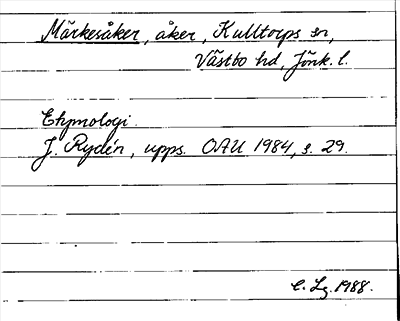 Märkesåker, åker, Kulltorps sn,
Västbo hd, Jönk. l.
Etymologi.
J. Rydén, upps. OAU 1984, s. 29.
C. Lg. 1988.